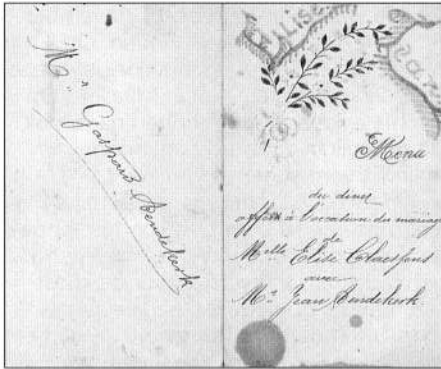 Mr Gaspard Aendekerk
ELISE
Menu
du diner
offert à l'occasion du mariage
de
Melle Elise Claessens
avec
Mr Jean Aendekerk